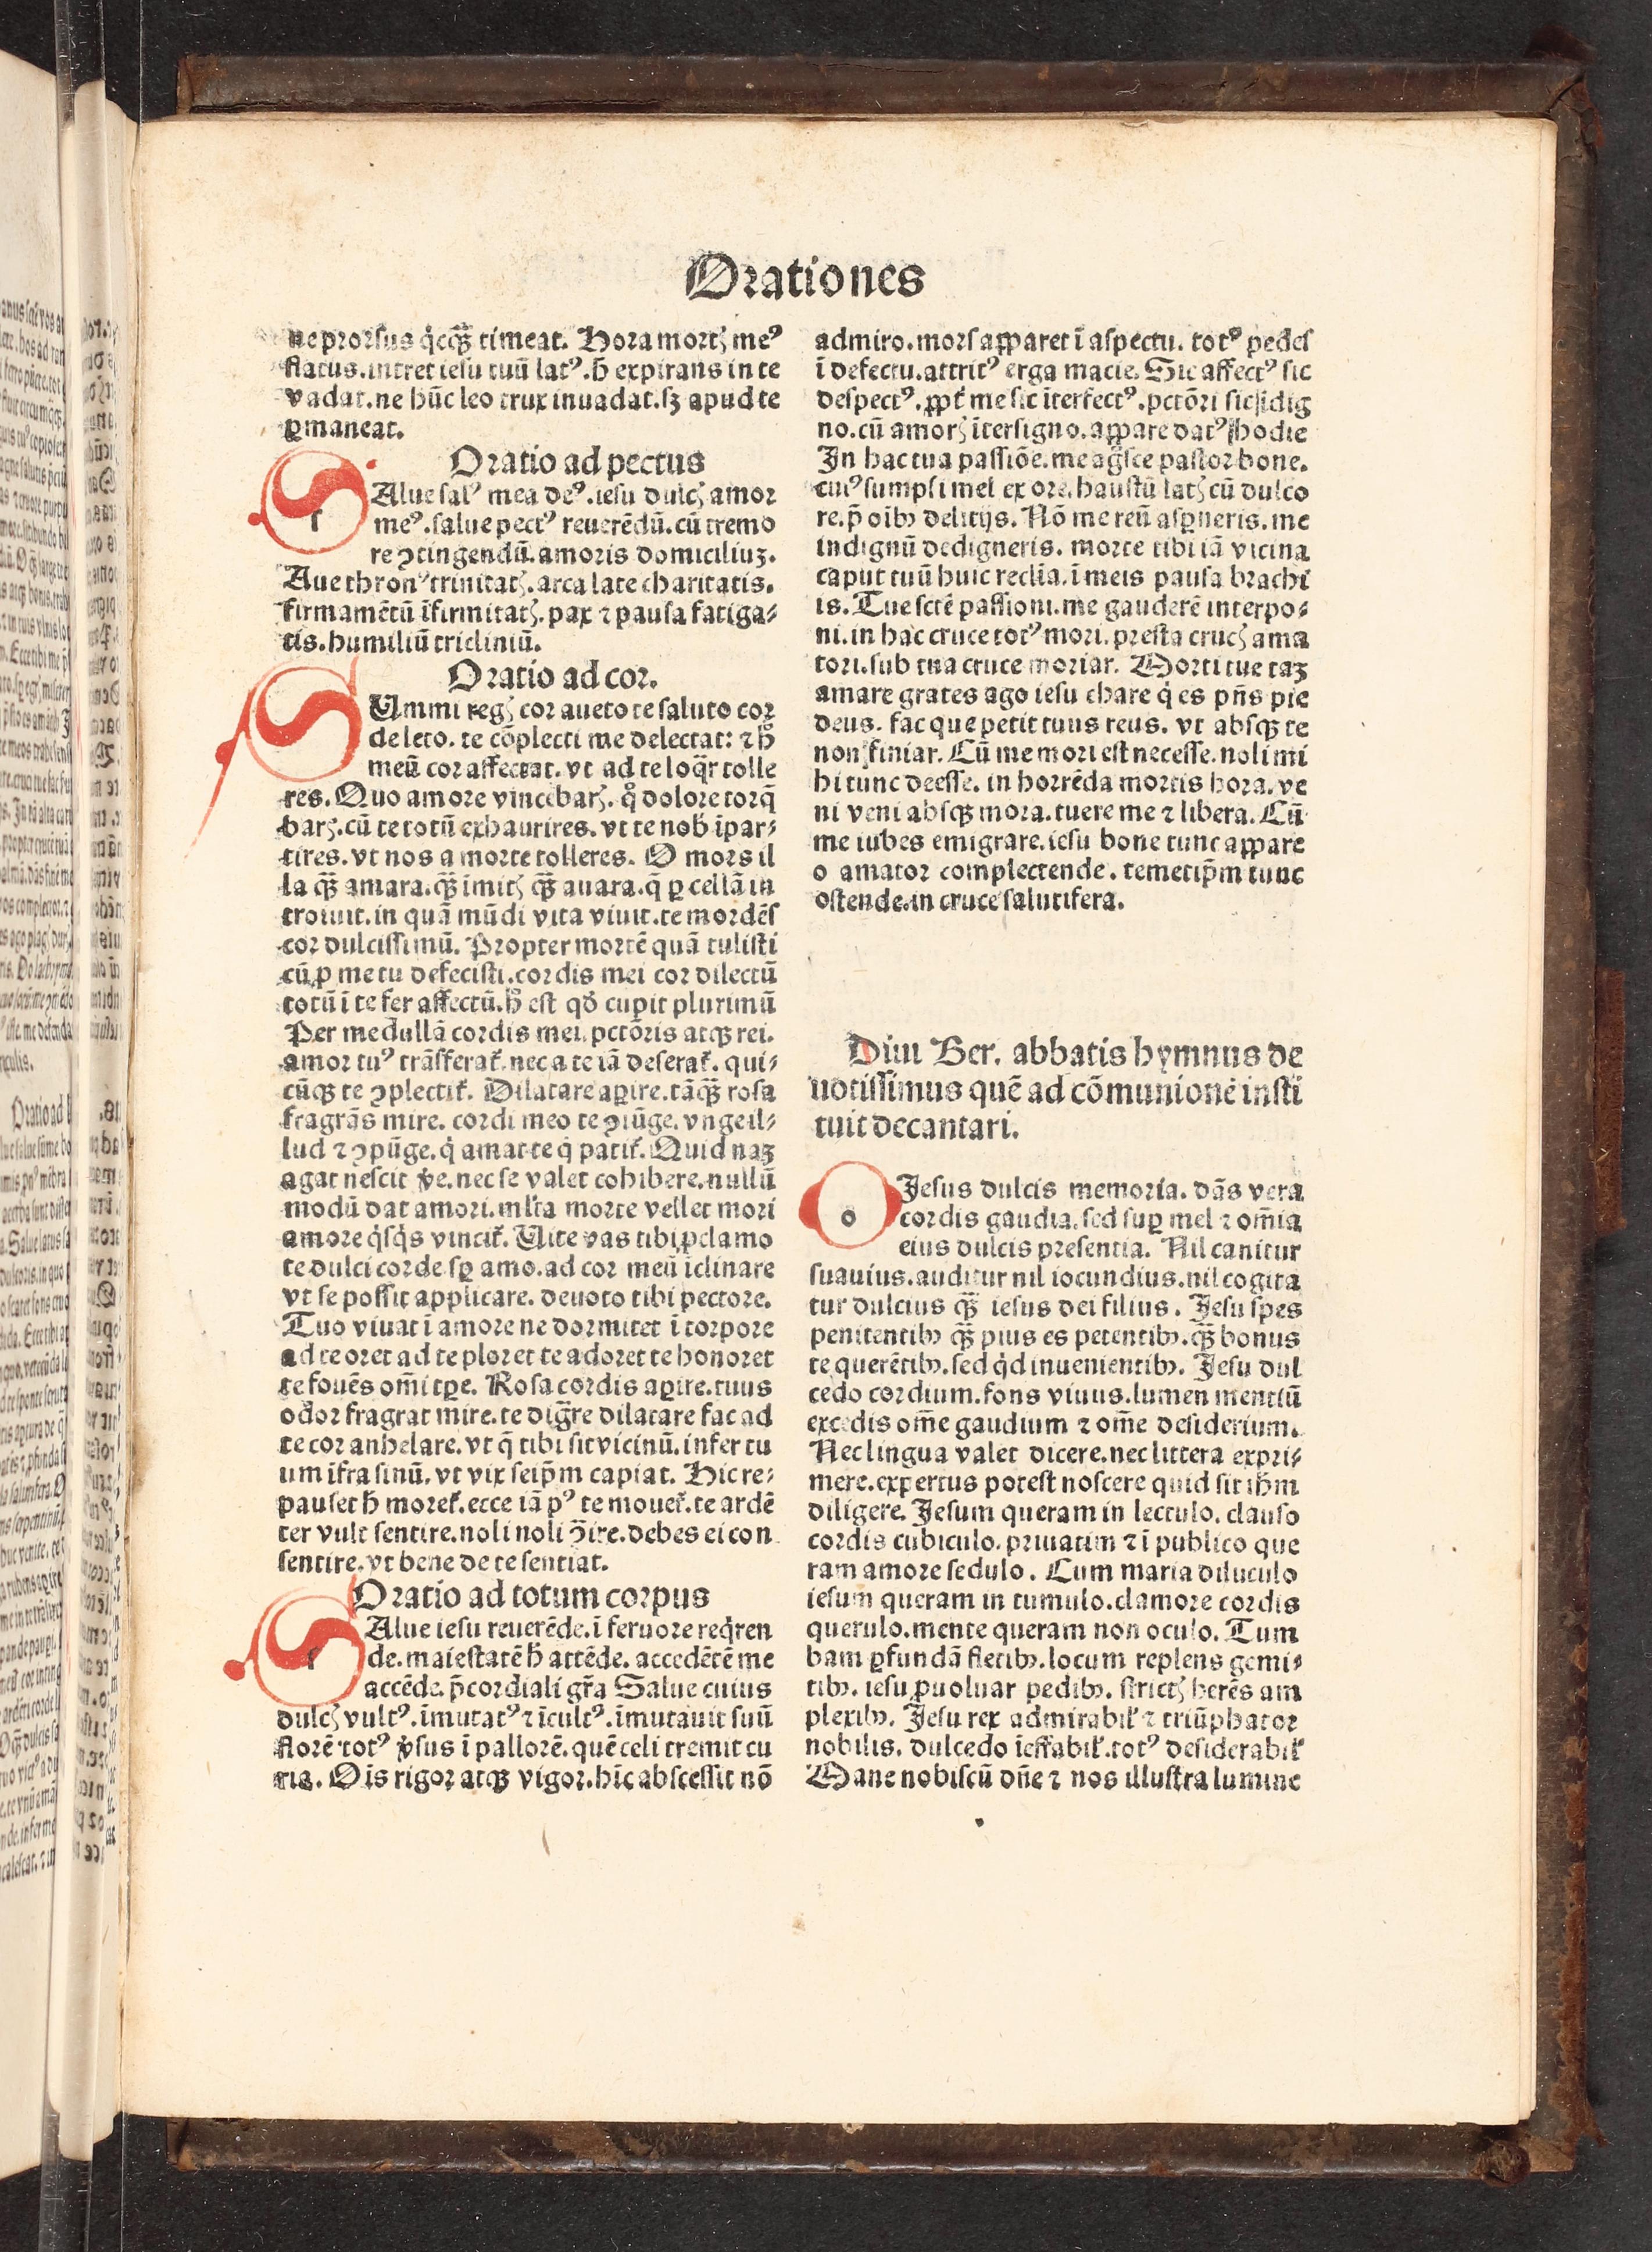 Orationes
ne prorsus q̇cq̄ꝫ timeat. Hora mortꝭ meꝰ
flatus. intret iesu tuū latꝰ. h̄ expirans in te
vadat. ne hūc leo trux inuadat. sꝫ apud te
ꝑmaneat.
Oratio ad pectus
SAlue salꝰ mea deꝰ. iesu dulcꝭ amor
meꝰ. salue pectꝰ reuerēdū. cū tremo
re ꝯtingendū. amoris domiciliuꝫ.
Aue thronꝰ trinitatꝭ. arca late charitatis.
firmamētū īfirmitatꝭ. pax ⁊ pausa fatiga⸗
tis. humiliū tricliniū.
Oratio ad cor.
SUmmi regꝭ cor aueto te saluto cor
de leto. te cōplecti me delectat: ⁊ h̄
meū cor affectat. vt ad te loq̄r tolle
res. Quo amore vincebarꝭ. q̊ dolore torq̄
barꝭ. cū te totū exhaurires. vt te nob̄ īpar⸗
tires. vt nos a morte tolleres. O mors il
la q̄ꝫ amara. q̄ꝫ īmitꝭ q̄ꝫ auara. q̄ ꝑ cellā in
troiuit. in quā mūdi vita viuit. te mordēs
cor dulcissimū. Propter mortē quā tulisti
cū ꝓ me tu defecisti. cordis mei cor dilectū
totū ī te fer affectū. h̊ est qd̄ cupit plurimū
Per medullā cordis mei. pctōris atqꝫ rei.
amor tuꝰ trāsferat̄. nec a te iā deserat̄. qui⸗
cūqꝫ te ꝯplectit̄. Dilatare aꝑire. tāq̄ꝫ rosa
fragrās mire. cordi meo te ꝯiūge. vnge il⸗
lud ⁊ ꝯpūge. q̇ amat te q̇ patit̄. Quid naꝫ
agat nescit v̄e. nec se valet cohibere. nullū
modū dat amori. ml̄ta morte vellet mori
amore q̇sq̇s vincit̄. Uite vas tibi ꝓclamo
te dulci corde sꝑ amo. ad cor meū īclinare
vt se possit applicare. deuoto tibi pectore.
Tuo viuat ī amore ne dormitet ī torpore
ad te oret ad te ploret te adoret te honoret
te fouēs om̄i tꝑe. Rosa cordis aꝑire. tuus
odor fragrat mire. te dig̅re dilatare fac ad
te cor anhelare. vt q̄ tibi sit vicinū. infer tu
um īfra sinū. vt vix seip̄m capiat. Hic re⸗
pauset h̄ moret̄. ecce iā pꝰ te mouet̄. te ardē
ter vult sentire. noli noli ꝯ̄ire. debes ei con
sentire. vt bene de te sentiat.
Oratio ad totum corpus
SAlue iesu reuerēde. ī feruore req̇ren
de. maiestatē h̄ attēde. accedētē me
accēde. p̄cordiali gr̄a Salue cuius
dulcꝭ vultꝰ. īmutatꝰ ⁊ īcultꝰ. īmutauit suū
florē totꝰ v̄sus ī pallorē. quē celi tremit cu
ria. Ois rigor atqꝫ vigor. hīc abscessit nō
admiro. mors apparet ī aspectu. totꝰ pēdēs
ī defectu. attritꝰ ęrga macie. Sic affectꝰ sic
despectꝰ. ꝓpt̄ me sic īterfectꝰ. pctōri sic īdig
no. cū amorꝭ īter signo. appare datꝰ hodie
In hac tua passiōe. me ag̅sce pastor bone.
cuiꝰ sumpsi mel ex ore. haustū latꝭ cū dulco
re. p̄ oibꝫ delitijs. Nō me reū asꝑneris. me
indignū dedigneris. morte tibi iā vicina
caput tuū huic reclīa. ī meis pausa brachi
is. Tue sctē passioni. me gauderē interpo⸗
ni. in hac cruce totꝰ mori. presta crucꝭ ama
tori. sub tua cruce moriar. Morti tue taꝫ
amare grates ago iesu chare q̇ es pn̄s pie
deus. fac que petit tuus reus. vt absqꝫ te
non finiar. Cū me mori est necesse. noli mi
hi tunc deesse. in horrēda mortis hora. ve
ni veni absqꝫ mora. tuere me ⁊ libera. Cū
me iubes emigrare. iesu bone tunc appare
o amator complectende. temetip̄m tunc
ostende. in cruce salutifera.
Diui Ber. abbatis hymnus de
uotissimus quē ad cōmunionē insti
tuit decantari.
o Jesus dulcis memoria. dās vera
cordis gaudia. sed suꝑ mel ⁊ om̄ia
eius dulcis presentia. Nil canitur
suauius. auditur nil iocundius. nil cogita
tur dulcius q̄ꝫ iesus dei filius. Jesu spes
penitentibꝫ q̄ꝫ pius es petentibꝫ. q̄ꝫ bonus
te querētibꝫ. sed q̇d inuenientibꝫ. Jesu dul
cedo cordium. fons viuus. lumen mentiū
excedis om̄e gaudium ⁊ om̄e desiderium.
Nec lingua valet dicere. nec littera expri⸗
mere. expertus potest noscere quid sit ih̄m
diligere. Jesum queram in lectulo. clauso
cordis cubiculo. priuatim ⁊ ī publico que
ram amore sedulo. Cum maria diluculo
iesum queram in tumulo. clamore cordis
querulo. mente queram non oculo. Tum
bam ꝓfundā fletibꝫ. locum replens gemi⸗
tibꝫ. iesu ꝓuoluar pedibꝫ. strictꝭ herēs am
plexibꝫ. Jesu rex admirabil̄ ⁊ triūphator
nobilis. dulcedo īeffabil̄. totꝰ desiderabil̄
Mane nobiscū dn̄e ⁊ nos illustra lumine